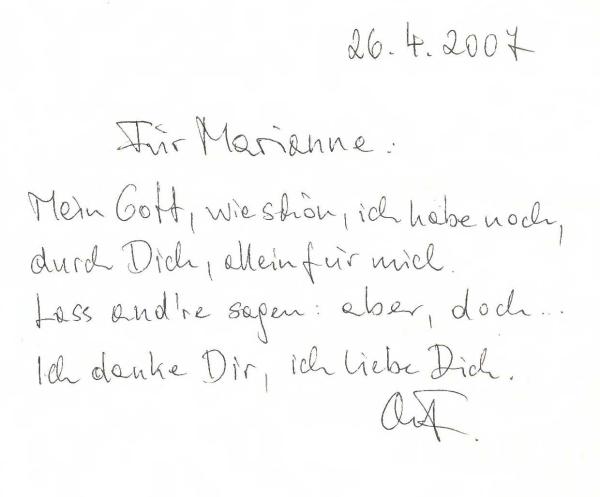 26.4.2007
Für Marianne:
Mein Gott, wie schön, ich habe noch,
durch Dich, allein für mich.
Lass and're sagen: aber, doch...
Ich danke Dir, ich liebe Dich.